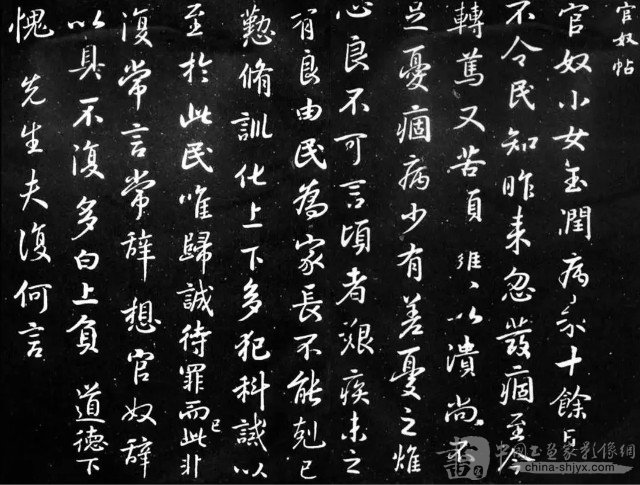 官奴帖
官奴小女玉潤病來十餘日
不令民知昨來忽發痼至今
轉篤又苦頭癰以潰尚不
足憂痼病少有差憂之燋
心良不可言頃者艱疾未之
有良由民為家長不能剋己
懃脩訓化上下多犯科誡以
至於此民唯歸誠待罪而已此非
復常言常辭想官奴辭
以具不復多白上負 道德下
愧 先生夫復何言
中國書畫家影像網
china-shjyx.com